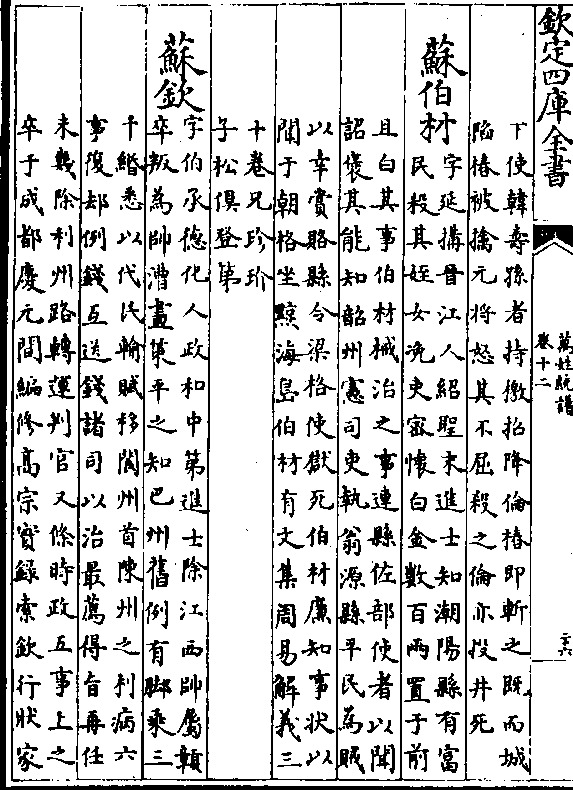 欽定四庫全書
萬姓統譜
卷十二
二六
下使韓壽孫者持檄招降倫椿即斬之既而城
陷椿被擒元将怒其不屈殺之倫亦投井死
蘇伯材
字延搆晉江人紹聖末進士知潮陽縣有富
民殺其姪女兔吏宻懷白金數百兩置于前
且白其事伯材械治之事連縣佐部使者以聞
詔褒其能知韶州憲司吏執翁源縣平民為賊
以幸賞賂縣令梁格使獄死伯材亷知事狀以
聞于朝格坐黥海島伯材有文集周易解義三
十卷兄珍玠
子松俱登第
蘇欽
字伯承德化人政和中第進士除江西帥屬贑
卒叛為帥漕畫策平之知巴州舊例有脚乗三
千緡悉以代民輸賦移閬州首陳州之利病六
事復却例錢互送錢諸司以治最薦得旨再任
未幾除利州路轉運判官又條時政五事上之
卒于成都慶元間編修高宗實錄索欽行狀家